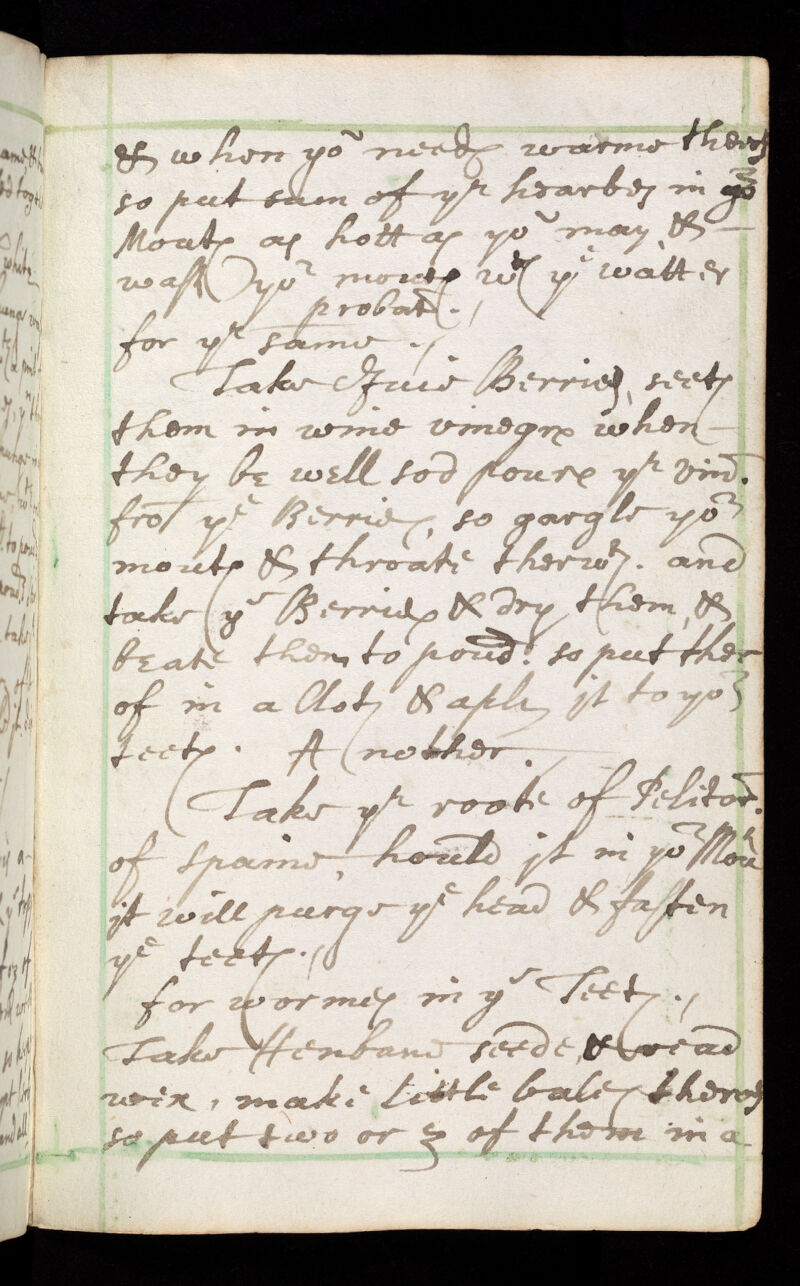 & when yo͂ need warme therof
so put sum of yᵉ hearbes in yoʳ
Mouth as hott as yo͂ may & –
wash yoʳ mouth wᵗʰ yᵉ watter
probat.
for yᵉ same.
Take Ivie Berries, seeth
them in wine vinegre when –
they be well sod poure yᵉ vind.
fro͂ yᵉ Berries, so gargle yoʳ
mouth & throate therwᵗʰ. and
take yᵉ Berries & dry them, &
beate them to poud: so put ther
of in a Cloth & aply jt to yoʳ
teeth. A nother.
Take yᵉ roote of Pelitor.
of spaine, hould jt in yoʳ Mou
jt will purge yᵉ head & fasten
yᵉ teeth.
for wormes in yᵉ Teeth.
Take Henbane seede, & read
wex, make little bales therof
so put two or 3 of them in a